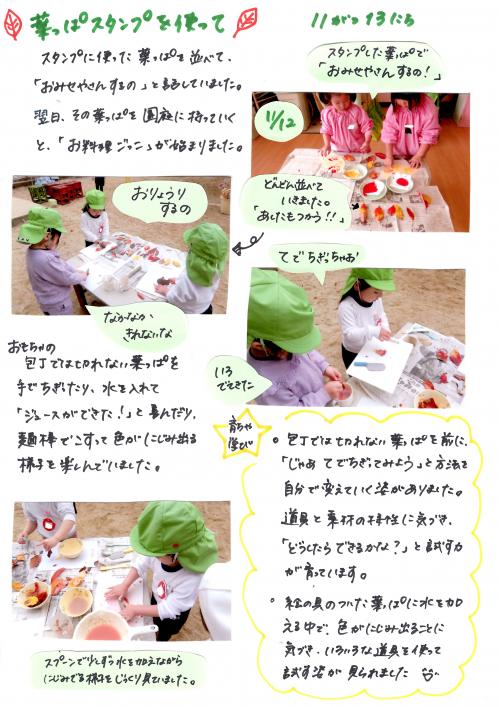 葉っぱスタンプを使って
11がつ13にち
スタンプに使った葉っぱを並べて、
「おみせやさんするの」と話していました。
翌日、その葉っぱを園庭に持っていく
と、「お料理ごっこ」が始まりました。
スタンプした葉っぱで
「おみせやさんするの!」
11/12
どんどん並べて
いきました。
「あしたもつかう!!」
おりょうり
するの
なかなか
きれないな
てでちぎっちゃお!
いろ
でてきた
おもちゃの
包丁では切れない葉っぱを
手でちぎったり、水を入れて
「ジュースができた!」と喜んだり、
麺棒でこすって色がにじみ出る
様子を楽しんでいました。
スプーンで少しずつ水を加えながら
にじみでる様子をじっくり見ていました。
育ちや
学び
。包丁では切れない葉っぱを前に、
「じゃあ てでちぎってみよう」と方法を
自分で変えていく姿がありました。
道具と素材の特性に気づき、
「どうしたらできるかな?」と試す力
が育っています。
。絵の具のついた葉っぱに水を加
える中で、色がにじみ出ることに
気づき、いろいろな道具を使って
試す姿が見られました